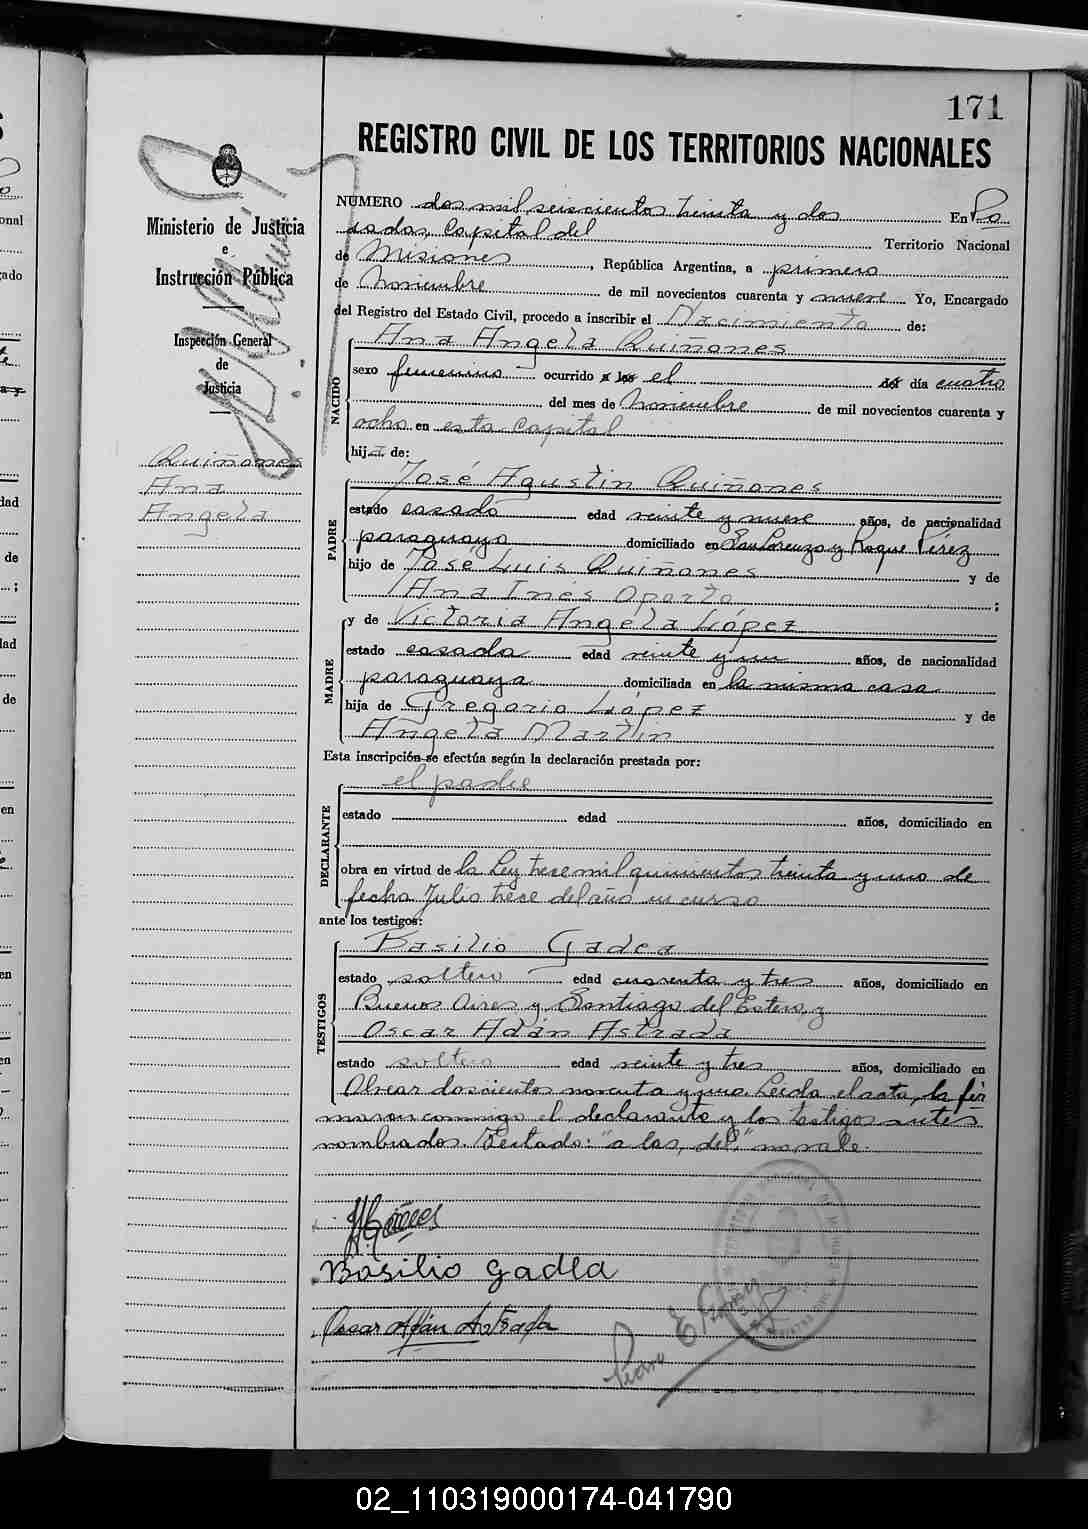 171
REGISTRO CIVIL DE LOS TERRITORIOS NACIONALES
Ministerio de Justicia
e
Instrucción Pública
Inspección General
de
Justicia
Quiñones
Ana
Angela
NÚMERO dos mil seiscientos treinta y dos En Po
sadas, Capital del Territorio Nacional
de Misiones, República Argentina, a primero
de Noviembre de mil novecientos cuarenta y nueve Yo, Encargado
del Registro del Estado Civil, procedo a inscribir el Nacimiento de:
NACIDO
Ana Angela Quiñones
sexo femenino ocurrido a las el del día cuatro
del mes de Noviembre de mil novecientos cuarenta y
ocho en esta Capital
hija de:
PADRE
José Agustin Quiñones
estado casado edad veinte y nueve años, de nacionalidad
paraguaya domiciliado en San Lorenzo y Roque Pérez
hijo de José Luis Quiñones y de
Ana Inés Oporto;
MADRE
y de Victoria Angela López
estado casada edad veinte y un años, de nacionalidad
paraguaya domiciliada en la misma casa
hija de Gregorio López y de
Angela Martín
Esta inscripción se efectúa según la declaración prestada por:
DECLARANTE
el padre
estado edad años, domiciliado en
obra en virtud de la Ley trece mil quinientos treinta y uno de
fecha Julio trece del año en curso
ante los testigos:
TESTIGOS
Basilio Gadea
estado soltero edad cuarenta y tres años, domiciliado en
Buenos Aires y Santiago del Estero, y
Oscar Adán Astrada
estado soltero edad veinte y tres años, domiciliado en
Alvear doscientos noventa y uno. Leída el acta, la fir
maron conmigo el declarante y los testigos antes
nombrados. Testado: "a las, del," no vale
Basilio Gadea
Oscar Adán Astrada
Pedro E
02_110319000174-041790